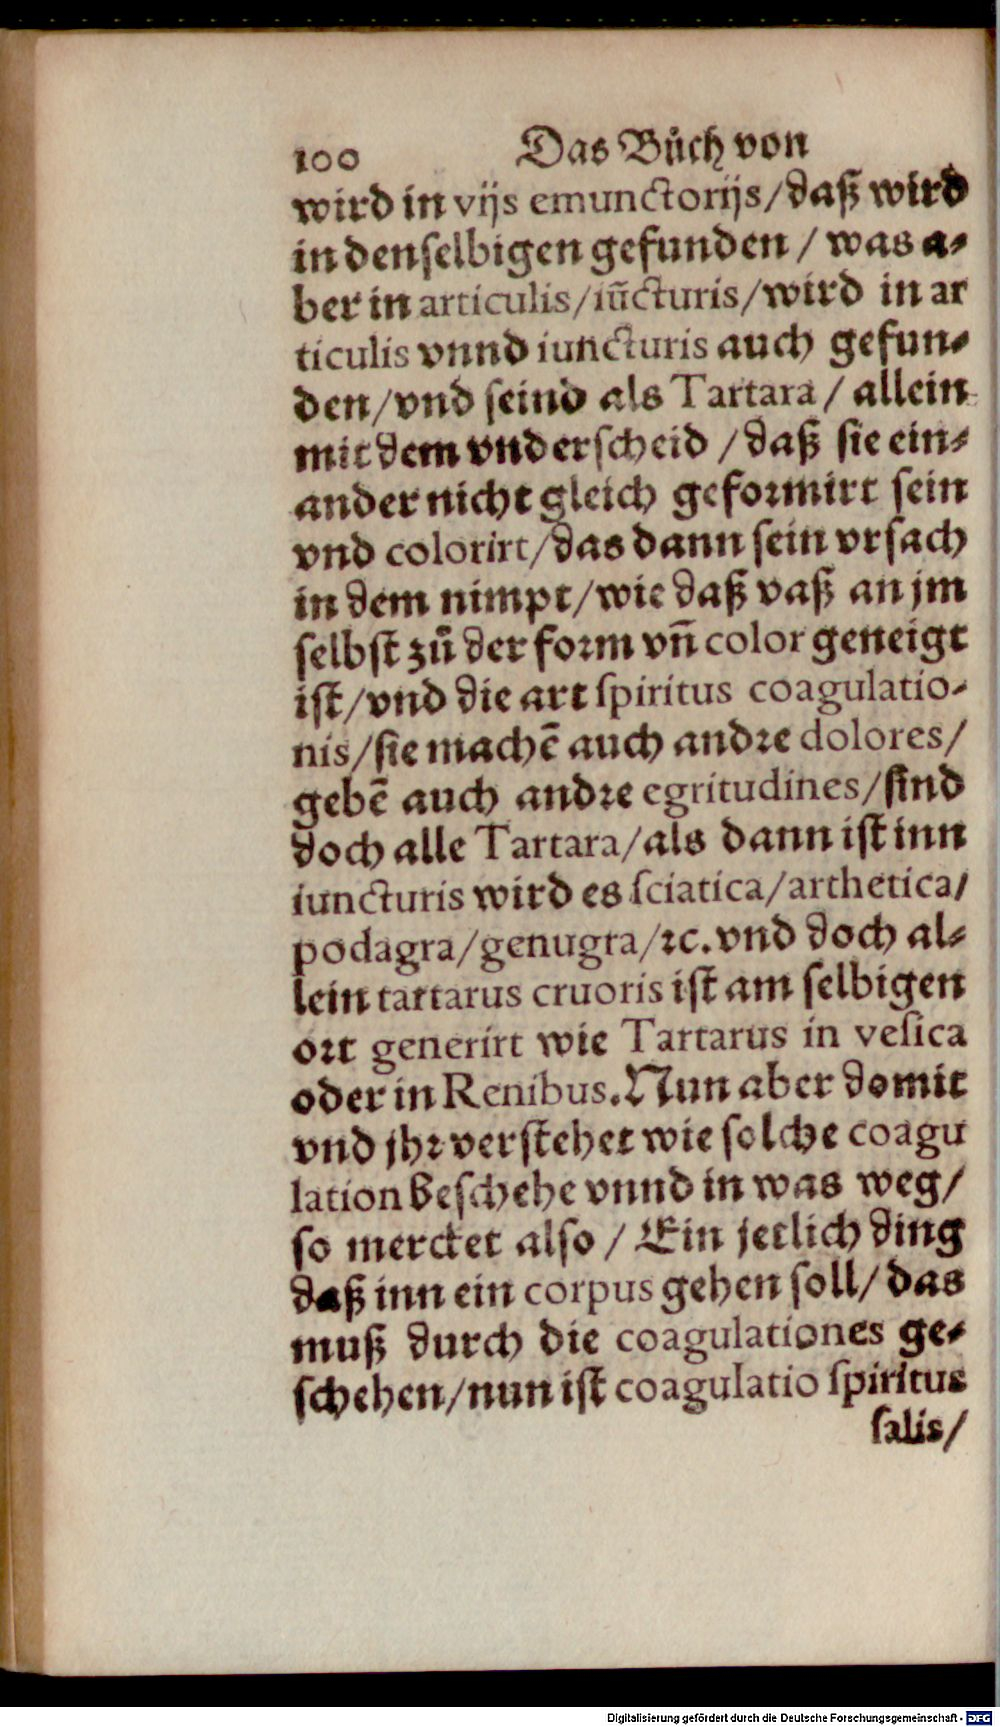 100 Das Bůch von
wird in vijs emunctorijs/daß wird
in denselbigen gefunden / was a-
ber in articulis/iūcturis/wird in ar
ticulis vnnd iuncturis auch gefun-
den/vnd seind als Tartara / allein
mit dem vnderscheid / daß sie ein-
ander nicht gleich geformirt sein
vnd colorirt/das dann sein vrsach
in dem nimpt/wie daß vaß an jm
selbst zů der form vn̄ color geneigt
ist/vnd die art spiritus coagulatio-
nis/sie machē auch andre dolores/
gebē auch andre egritudines/sind
doch alle Tartara/als dann ist inn
iuncturis wird es sciatica/arthetica/
podagra/genugra/ꝛc. vnd doch al-
lein tartarus cruoris ist am selbigen
ort generirt wie Tartarus in vesica
oder in Renibus. Nun aber domit
vnd jhr verstehet wie solche coagu
lation beschehe vnnd in was weg/
so mercket also / Ein jetlich ding
daß inn ein corpus gehen soll/das
muß durch die coagulationes ge-
schehen/nun ist coagulatio spiritus
salis/
Digitalisierung gefördert durch die Deutsche Forschungsgemeinschaft - DFG